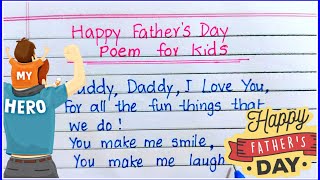 Happy Father's Day
Poem for kids
Daddy, Daddy, I Love You,
For all the fun things that
we do!
You make me smile,
You make me laugh
MY
HERO
HAPPY
FATHER'S
DAY